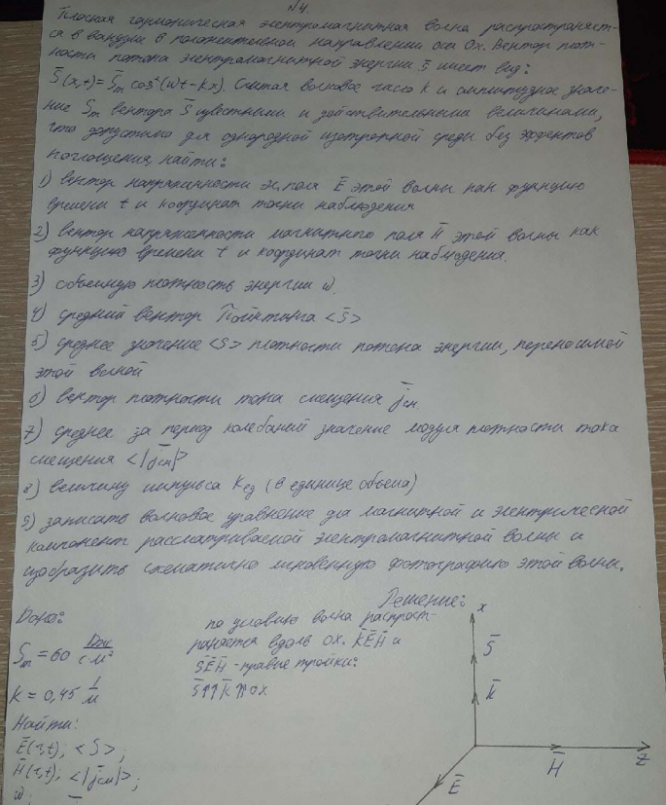 №4.
Плоская гармоническая электромагнитная волна распространяет-
ся в вакууме в положительном направлении оси Ox. Вектор плот-
ности потока электромагнитной энергии S̄ имеет вид:
S̄(x,t)=S̄m cos²(ωt-kx). Считая волновое число k и амплитудное значе-
ние Sm вектора S̄ известными и действительными величинами,
что допустимо для однородной изотропной среды без эффектов
поглощения, найти:
1) вектор напряженности эл. поля Ē этой волны как функцию
времени t и координат точки наблюдения
2) вектор напряженности магнитного поля H̄ этой волны как
функцию времени t и координат точки наблюдения.
3) объемную плотность энергии ω
4) средний вектор Пойнтинга <S̄>
5) среднее значение <S> плотности потока энергии, переносимой
этой волной
6) вектор плотности тока смещения j̄см
7) среднее за период колебаний значение модуля плотности тока
смещения <|j̄см|>
8) величину импульса Kед (в единице объема)
9) записать волновое уравнение для магнитной и электрической
компонент рассматриваемой электромагнитной волны и
изобразить схематично мгновенную фотографию этой волны.
Дано:
Sm = 60 Дж/с м²
k = 0,45 1/м
Найти:
Ē(r,t); <S>;
H̄(r,t); <|j̄см|>;
ω
Решение:
по условию волна распрост-
раняется вдоль OX. K̄ĒH̄ и
S̄ĒH̄ - правые тройки:
S̄↑↑K̄↑↑OX
x
S̄
K̄
H̄
z
Ē